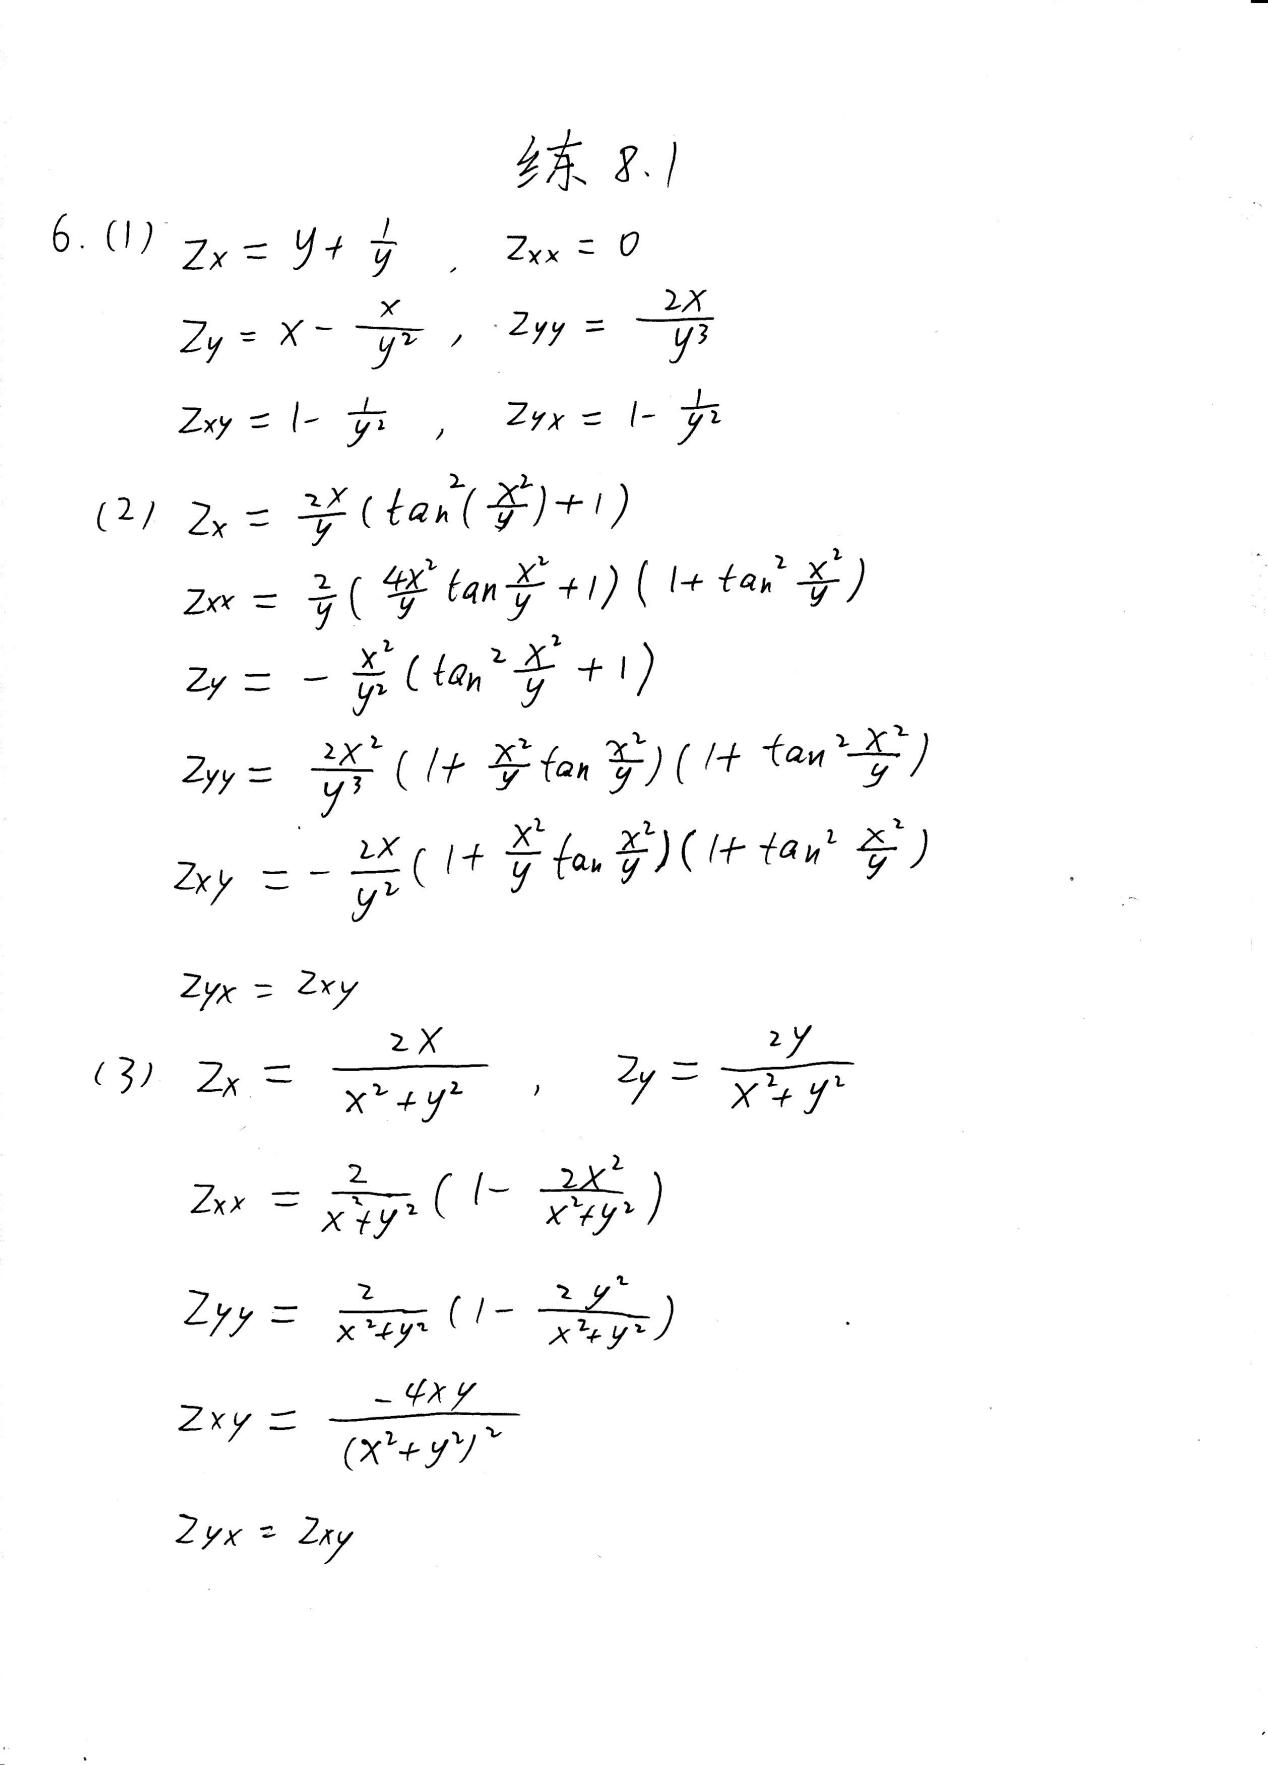 练 8.1
6. (1) Zx = y + 1/y , Zxx = 0
Zy = x - x/y² , Zyy = 2x/y³
Zxy = 1 - 1/y² , Zyx = 1 - 1/y²
(2) Zx = 2x/y (tan²(x²/y) + 1)
Zxx = 2/y ( 4x²/y tan x²/y + 1) ( 1 + tan² x²/y )
Zy = - x²/y² (tan² x²/y + 1)
Zyy = 2x²/y³ ( 1 + x²/y tan x²/y ) ( 1 + tan² x²/y )
Zxy = - 2x/y² ( 1 + x²/y tan x²/y ) ( 1 + tan² x²/y )
Zyx = Zxy
(3) Zx = 2x/(x² + y²) , Zy = 2y/(x² + y²)
Zxx = 2/(x² + y²) ( 1 - 2x²/(x² + y²) )
Zyy = 2/(x² + y²) ( 1 - 2y²/(x² + y²) )
Zxy = -4xy/(x² + y²)²
Zyx = Zxy